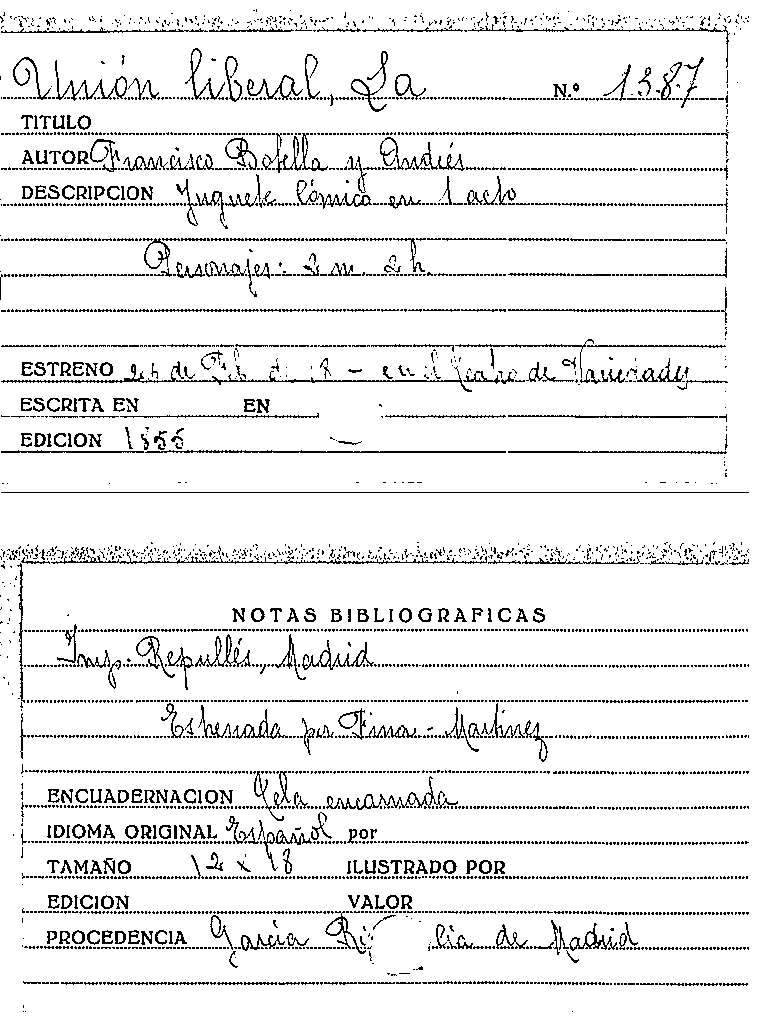 Unión liberal, La N.º 1387
TITULO
AUTOR Francisco Botella y Andrés
DESCRIPCION Juguete Cómico en 1 acto
Personajes: 2 m. 2 h.
ESTRENO de Feb. de 18 - en el Teatro de Variedades
ESCRITA EN EN
EDICION 1855
NOTAS BIBLIOGRAFICAS
Imp. Repullés, Madrid
Estrenada por Martínez
ENCUADERNACION Tela encarnada
IDIOMA ORIGINAL Español por
TAMAÑO 12 x 18 ILUSTRADO POR
EDICION VALOR
PROCEDENCIA García de Madrid